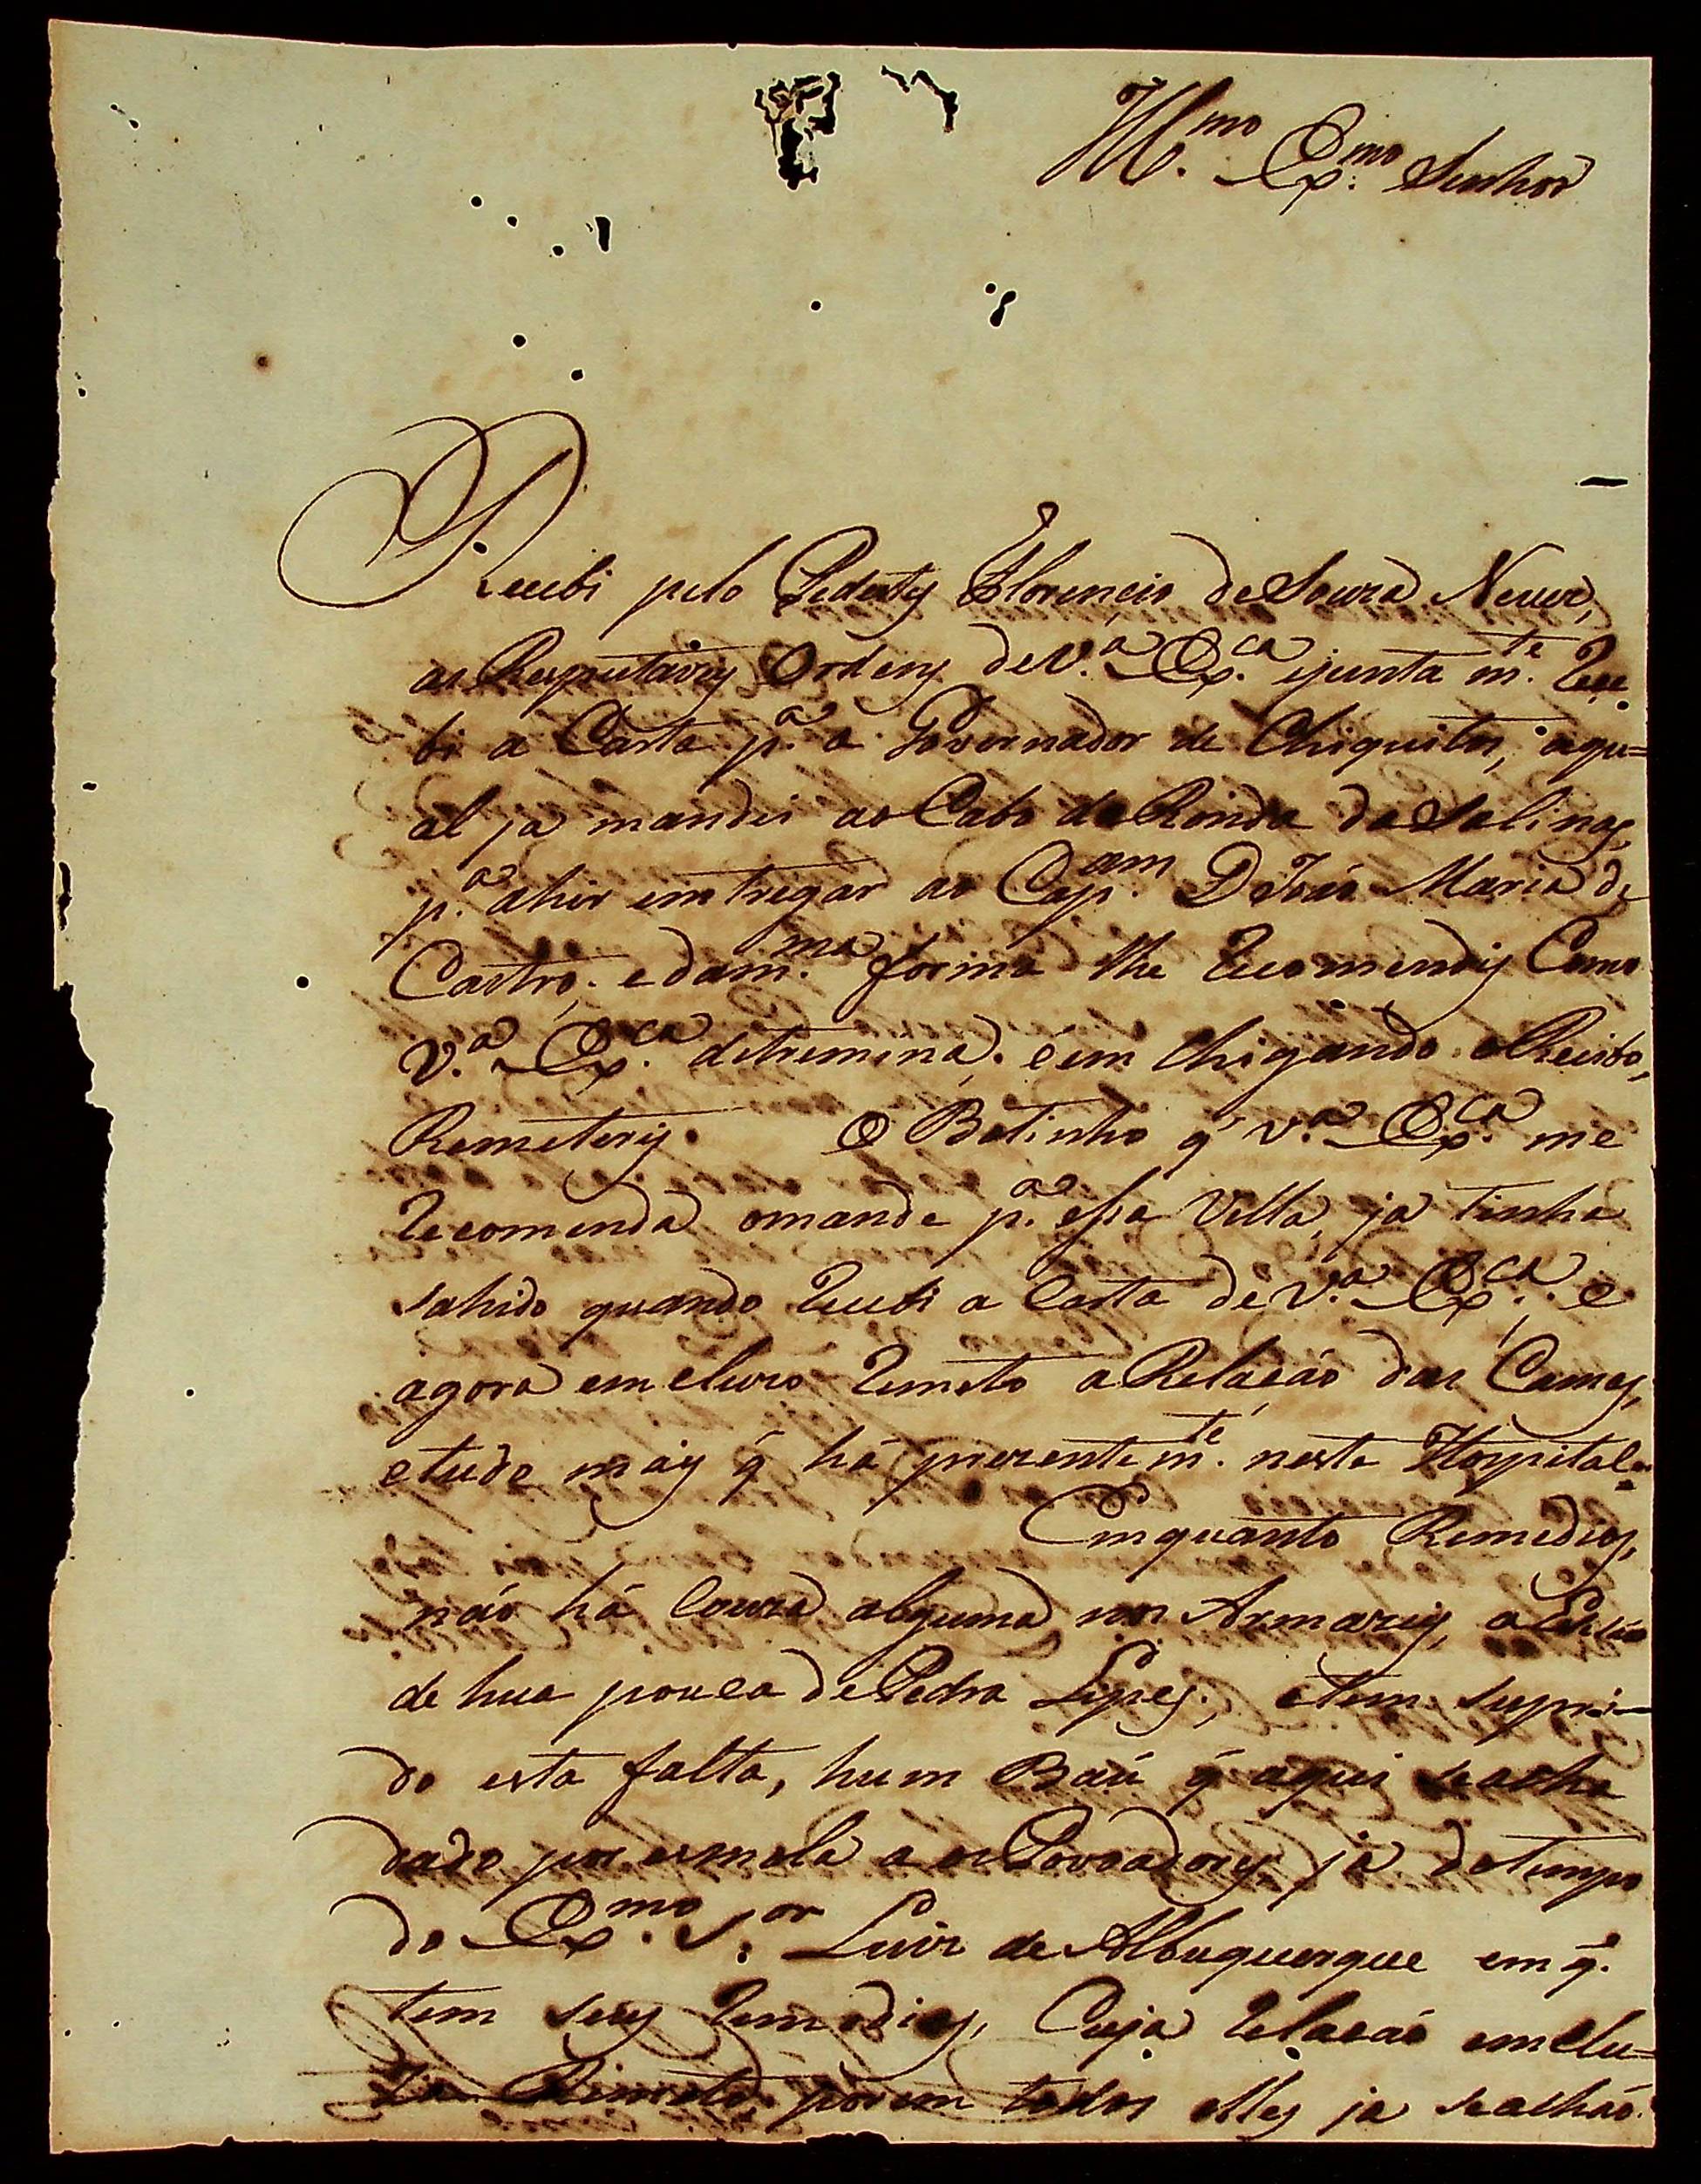 Ill.mo Ex.mo Senhor
Recebi pelo Pedestʒ Florencio de Souza Neues,
as Respeitaveis Ordens de V.a Ex.ca ejunta m.te Rece
bi a Carta p.a o Governador de Chiquitos, aqu=
al ja mandei ao Cabo da Ronda da Salinas,
p.a ahir emtregar ao Cap.am D João Maria de
Castro; edam.ma forma lhe Recomendei Como
V.a Ex.ca detremina; e em Chigando o Recibo,
Remeterei. O Botinho q' V.a Ex.ca me
Recomenda omande p.a essa Villa, ja tinha
sahido quando Recebi a Carta de V.a Ex.ca, e
agora emcluzo Remeto a Relacáo das Camas,
etudo mais q' há prezentem.te neste Hospital.
Emquanto Remedios,
náo há Couza alguma nos Armarios,
de hua pouca de Pedra Lipes; etem supri-
do esta falta, hum Baú q' aqui seacha
dado por esmola a os Povoadores ja dotempo
do Ex.mo S.or Luiz de Albuquerque em q.
tem seus Remedios, Cuja Relacáo emclu=
za Remeto porem todos elles ja seacháo